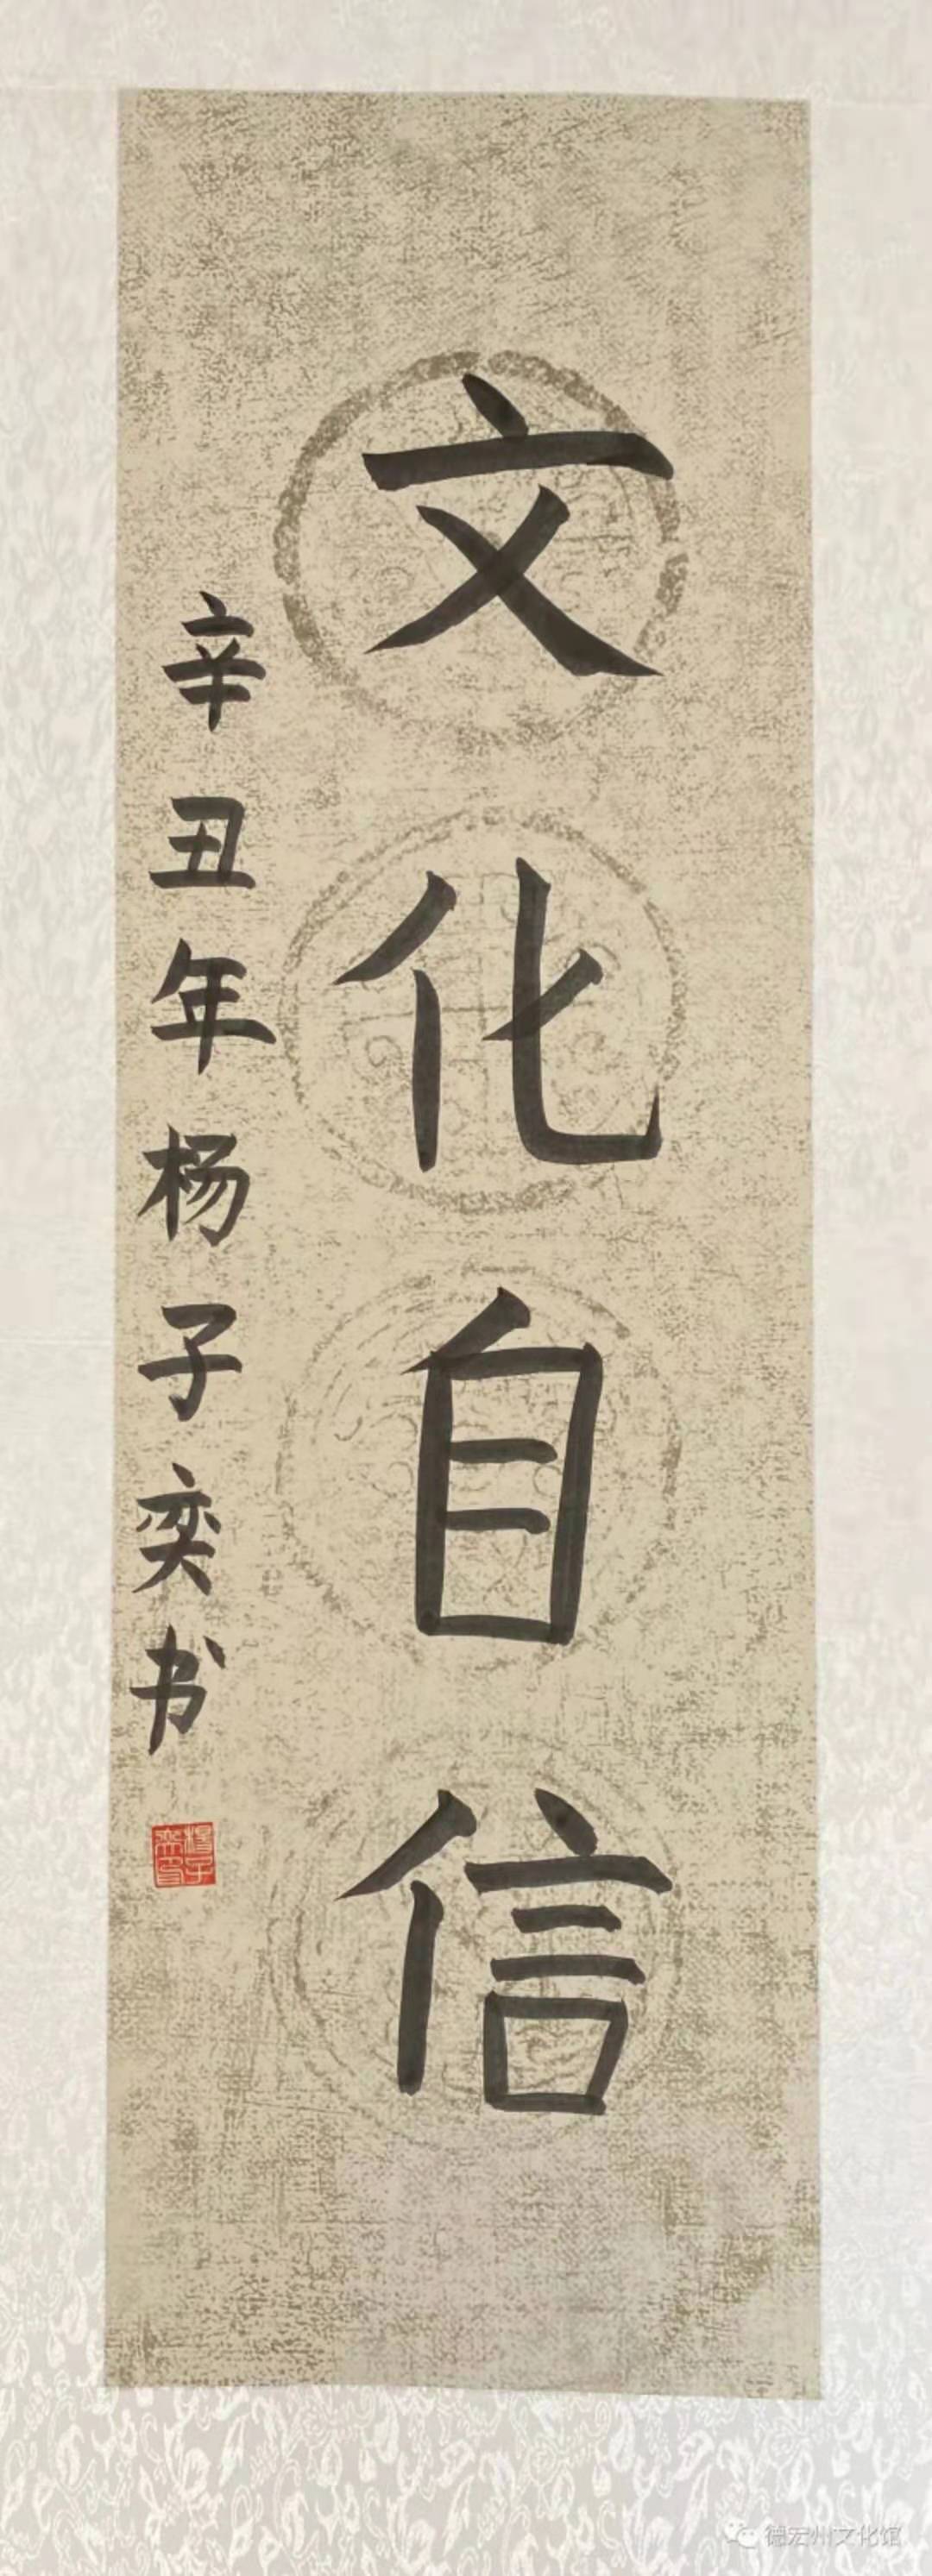 文化自信
辛丑年杨子奕书
楊子奕印
德宏州文化馆